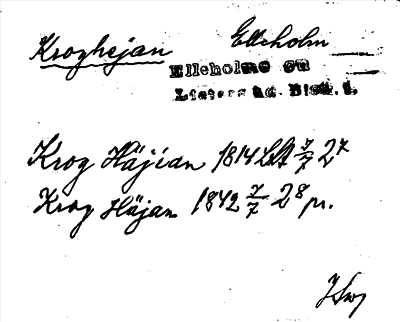 Kroghejan Elleholm
Elleholms sn
Listers hd. Blek. l.
Krog Häjian 1814 LA 7/7 27
Krog Häjan 1842 7/7 28 pr.